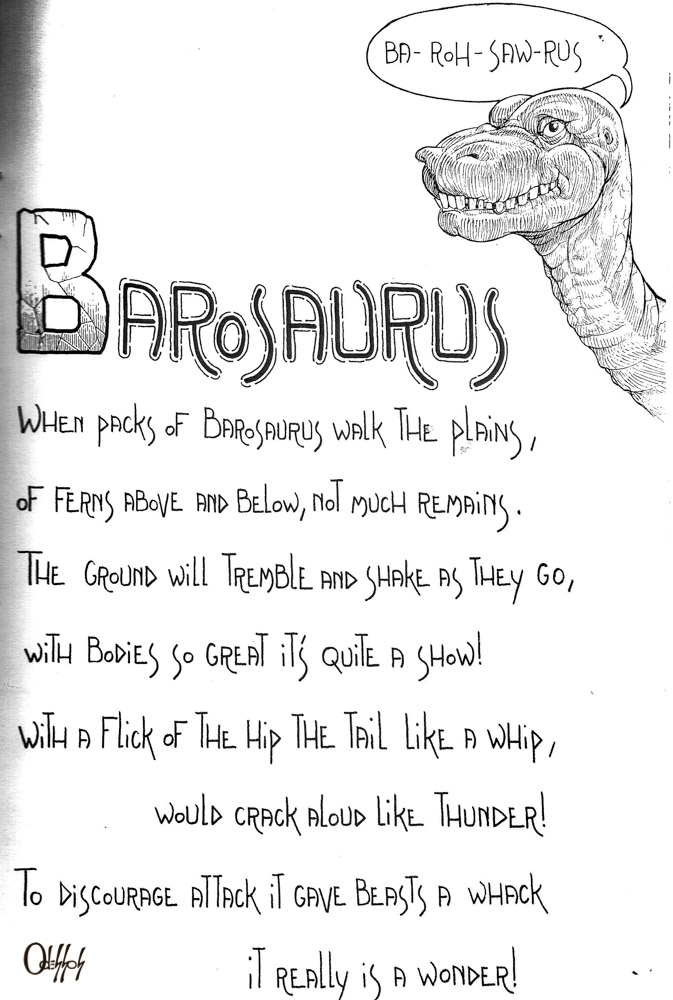 BA-ROH-SAW-RUS
BAROSAURUS
WHEN PACKS OF BAROSAURUS WALK THE PLAINS,
OF FERNS ABOVE AND BELOW, NOT MUCH REMAINS.
THE GROUND WILL TREMBLE AND SHAKE AS THEY GO,
WITH BODIES SO GREAT IT'S QUITE A SHOW!
WITH A FLICK OF THE HIP THE TAIL LIKE A WHIP,
WOULD CRACK ALOUD LIKE THUNDER!
TO DISCOURAGE ATTACK IT GAVE BEASTS A WHACK
IT REALLY IS A WONDER!